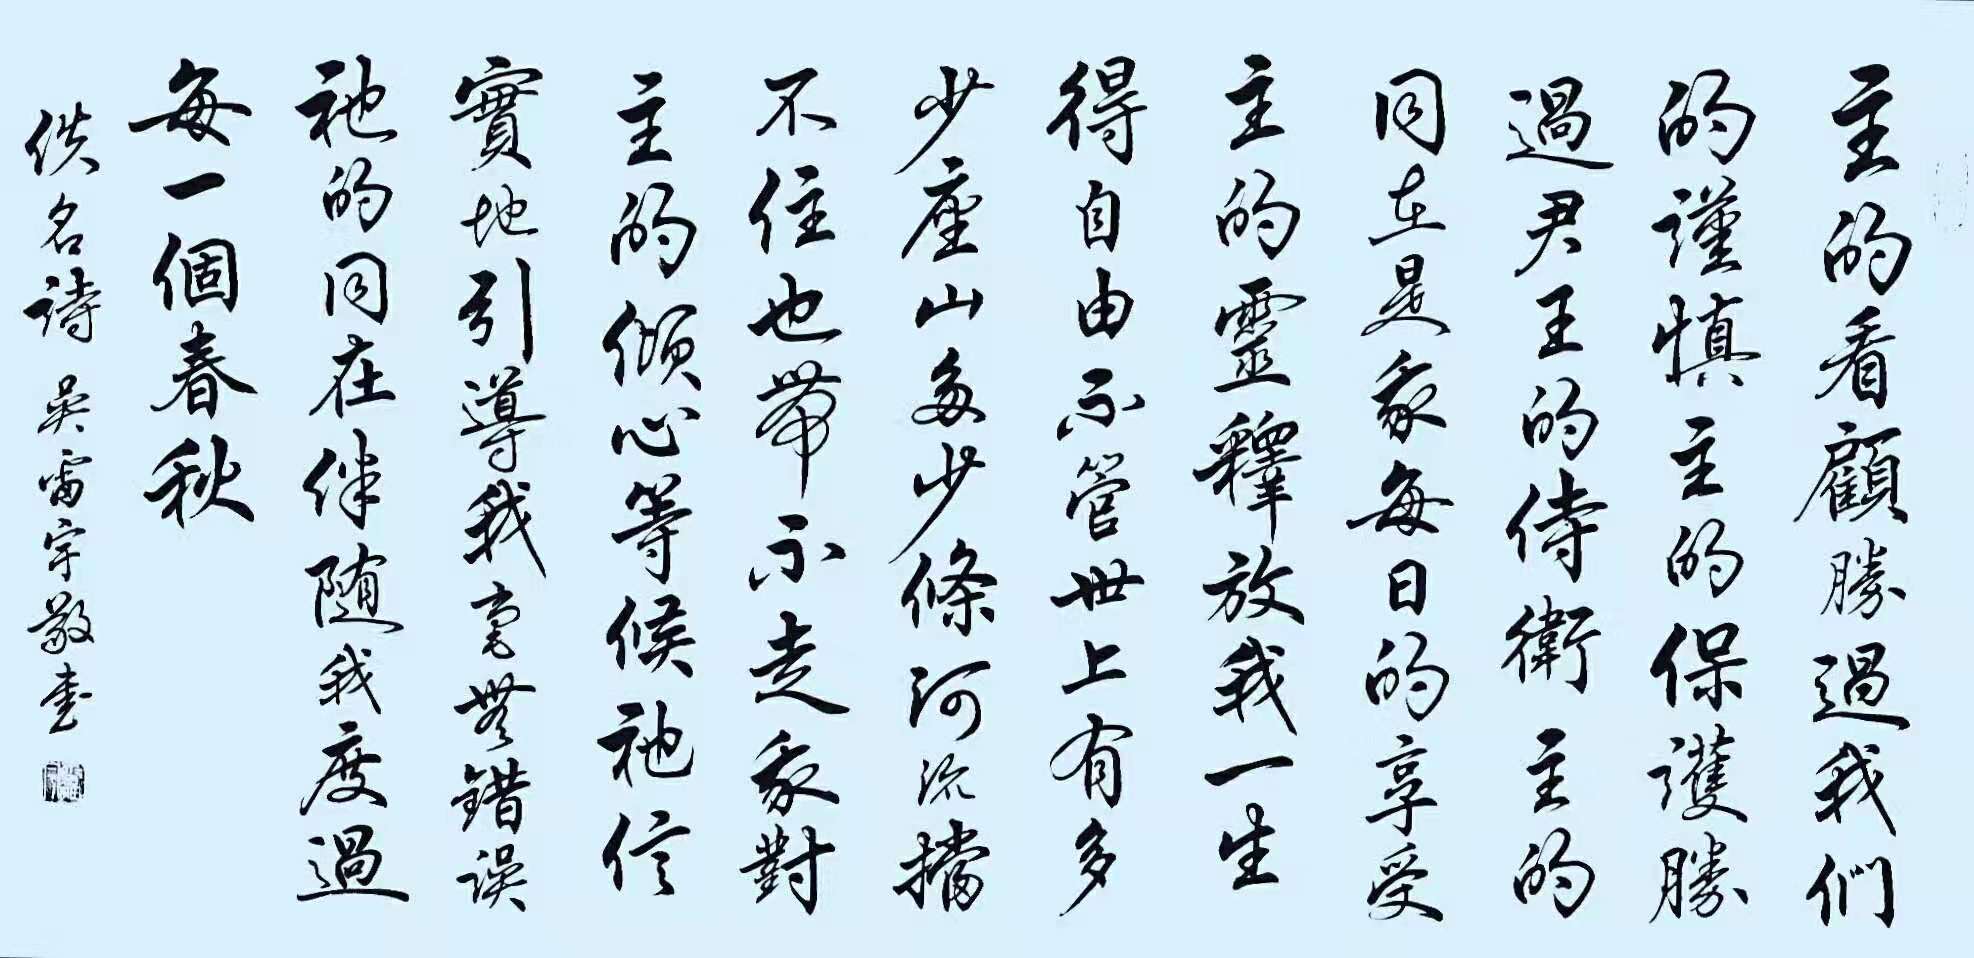 主的看顧勝過我們
的謹慎主的保護勝
過君王的侍衛主的
同在是我每日的享受
主的靈釋放我一生
得自由不管世上有多
少座山多少條河流擋
不住也帶不走我對
主的傾心等候祂信
實地引導我毫無錯誤
祂的同在伴随我度過
每一個春秋
佚名詩 吳雷宇敬書